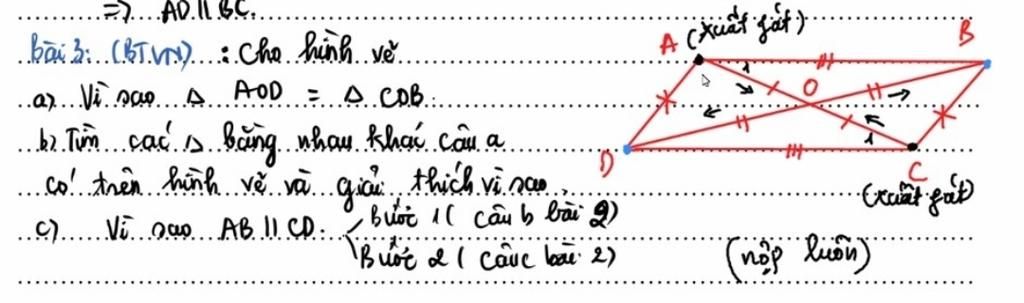 => AD || BC.
bài 3: (BTVN) : Cho hình vẽ
a) Vì sao Δ AOD = Δ COB.
b) Tìm các Δ bằng nhau khác câu a
có trên hình vẽ và giải thích vì sao.
c) Vì sao AB || CD. Bước 1 ( câu b bài 2)
Bước 2 ( câu c bài 2)
(nộp luôn)
A (xuất phát) B
1 O
1
D C
(xuất phát)